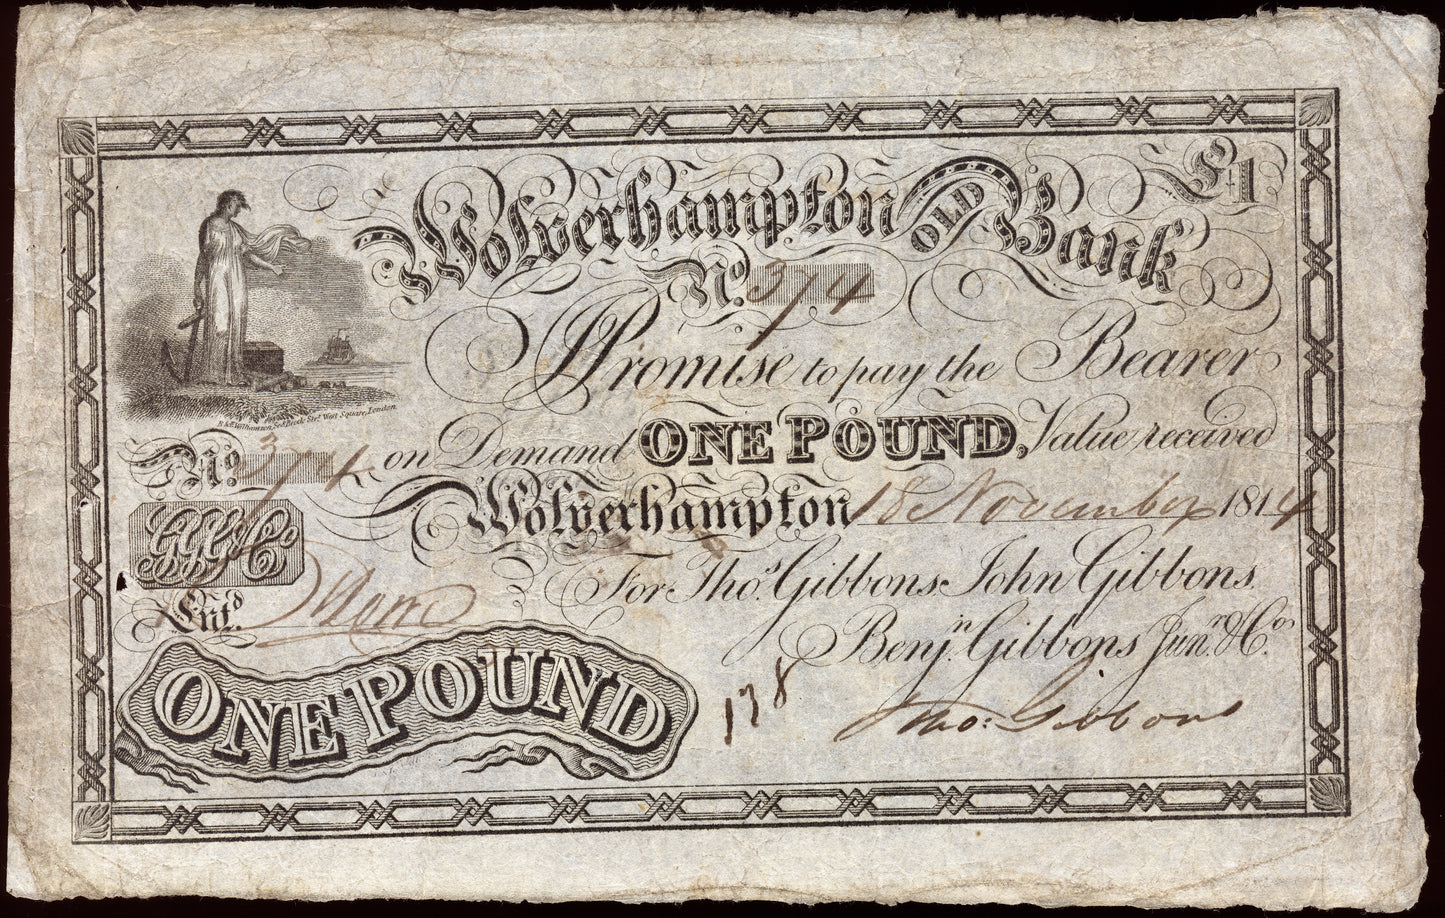 Wolverhampton OLD Bank £1
No. 374
I Promise to pay the Bearer
R & E Williamson, Sc.
West Square, London
No. 374 on Demand ONE POUND, Value received
Wolverhampton 18 November 1814
GGG & Co.
For Thos. Gibbons John Gibbons
Entd.
Benjn. Gibbons Junr. & Co.
178
Thos: Gibbons
ONE POUND